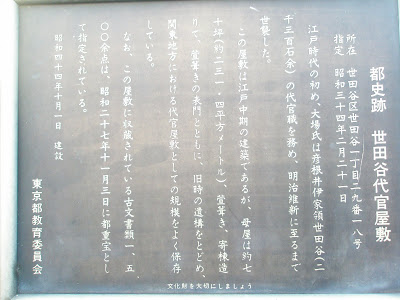 都史跡　世田谷代官屋敷
所在　世田谷区世田谷一丁目二九番一八号
指定　昭和三十四年二月二十一日
江戸時代の初め、大場氏は彦根井伊家領世田谷(二
千三百石余)の代官職を務め、明治維新に至るまで
世襲した。
この屋敷は江戸中期の建築であるが、母屋は約七
十坪(約二三一・四平方メートル)、萱葺き、寄棟造
りで、萱葺きの表門とともに、旧時の遺構をとどめ、
関東地方における代官屋敷としての規模をよく保存
している。
なお、この屋敷に収蔵されている古文書類一、五
〇〇余点は、昭和二十七年十一月三日に都重宝とし
て指定されている。
昭和四十四年十月一日　建設
東京都教育委員会
文化財を大切にしましょう